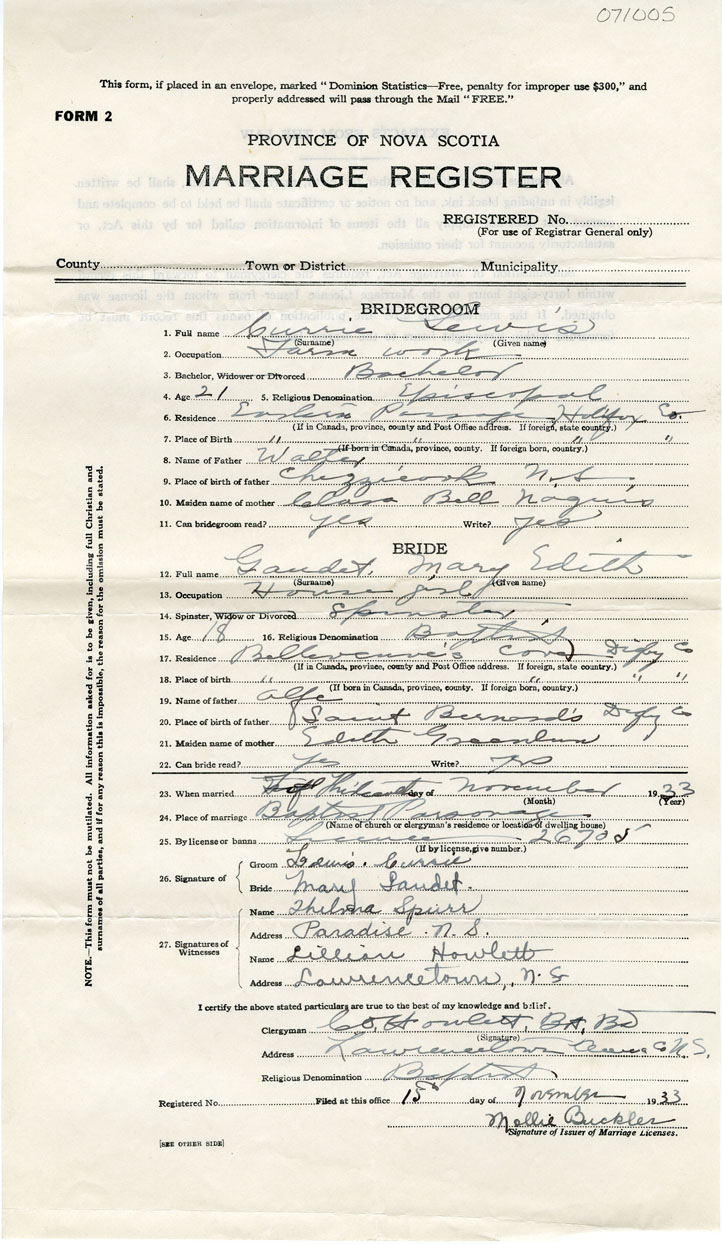 071005
This form, if placed in an envelope, marked " Dominion Statistics—Free, penalty for improper use $300," and
properly addressed will pass through the Mail " FREE."
FORM 2
PROVINCE OF NOVA SCOTIA
MARRIAGE REGISTER
REGISTERED No.
(For use of Registrar General only)
County Town or District Municipality
BRIDEGROOM
1. Full name Currie Lewis
(Surname) (Given name)
2. Occupation Farm work
3. Bachelor, Widower or Divorced Bachelor
4. Age 21 5. Religious Denomination Episcopal
6. Residence Eastern Passage Halifax Co
(If in Canada, province, county and Post Office address. If foreign, state country.)
7. Place of Birth " " " "
(If born in Canada, province, county. If foreign born, country.)
8. Name of Father Walter
9. Place of birth of father Chezzicook N.S.
10. Maiden name of mother Clara Bell
11. Can bridegroom read? yes Write? yes
BRIDE
12. Full name Gaudet, Mary Edith
(Surname) (Given name)
13. Occupation House girl
14. Spinster, Widow or Divorced Spinster
15. Age 18 16. Religious Denomination Baptist
17. Residence Cove Digby Co
(If in Canada, province, county and Post Office address. If foreign, state country.)
18. Place of birth " " " "
(If born in Canada, province, county. If foreign born, country.)
19. Name of father
20. Place of birth of father Saint Bernard's Digby Co
21. Maiden name of mother Edith
22. Can bride read? Yes Write? Yes
23. When married day of November 1933
(Month) (Year)
24. Place of marriage Baptist Parsonage
(Name of church or clergyman's residence or location of dwelling house)
25. By license or banns License
(If by license, give number.)
26. Signature of
Groom Lewis. Currie
Bride Mary Gaudet.
27. Signatures of Witnesses
Name Thelma Spurr
Address Paradise N.S.
Name Lillian Howlett
Address Lawrencetown, N.S
I certify the above stated particulars are true to the best of my knowledge and belief.
Clergyman Howlett, BA, BD
(Signature)
Address Lawrencetown Anna Co N.S.
Religious Denomination Baptist
Registered No. Filed at this office 15th day of November 1933
Mollie Buckler
Signature of Issuer of Marriage Licenses.
[SEE OTHER SIDE]
NOTE.—This form must not be mutilated. All information asked for is to be given, including full Christian and
surnames of all parties, and if for any reason this is impossible, the reason for the omission must be stated.